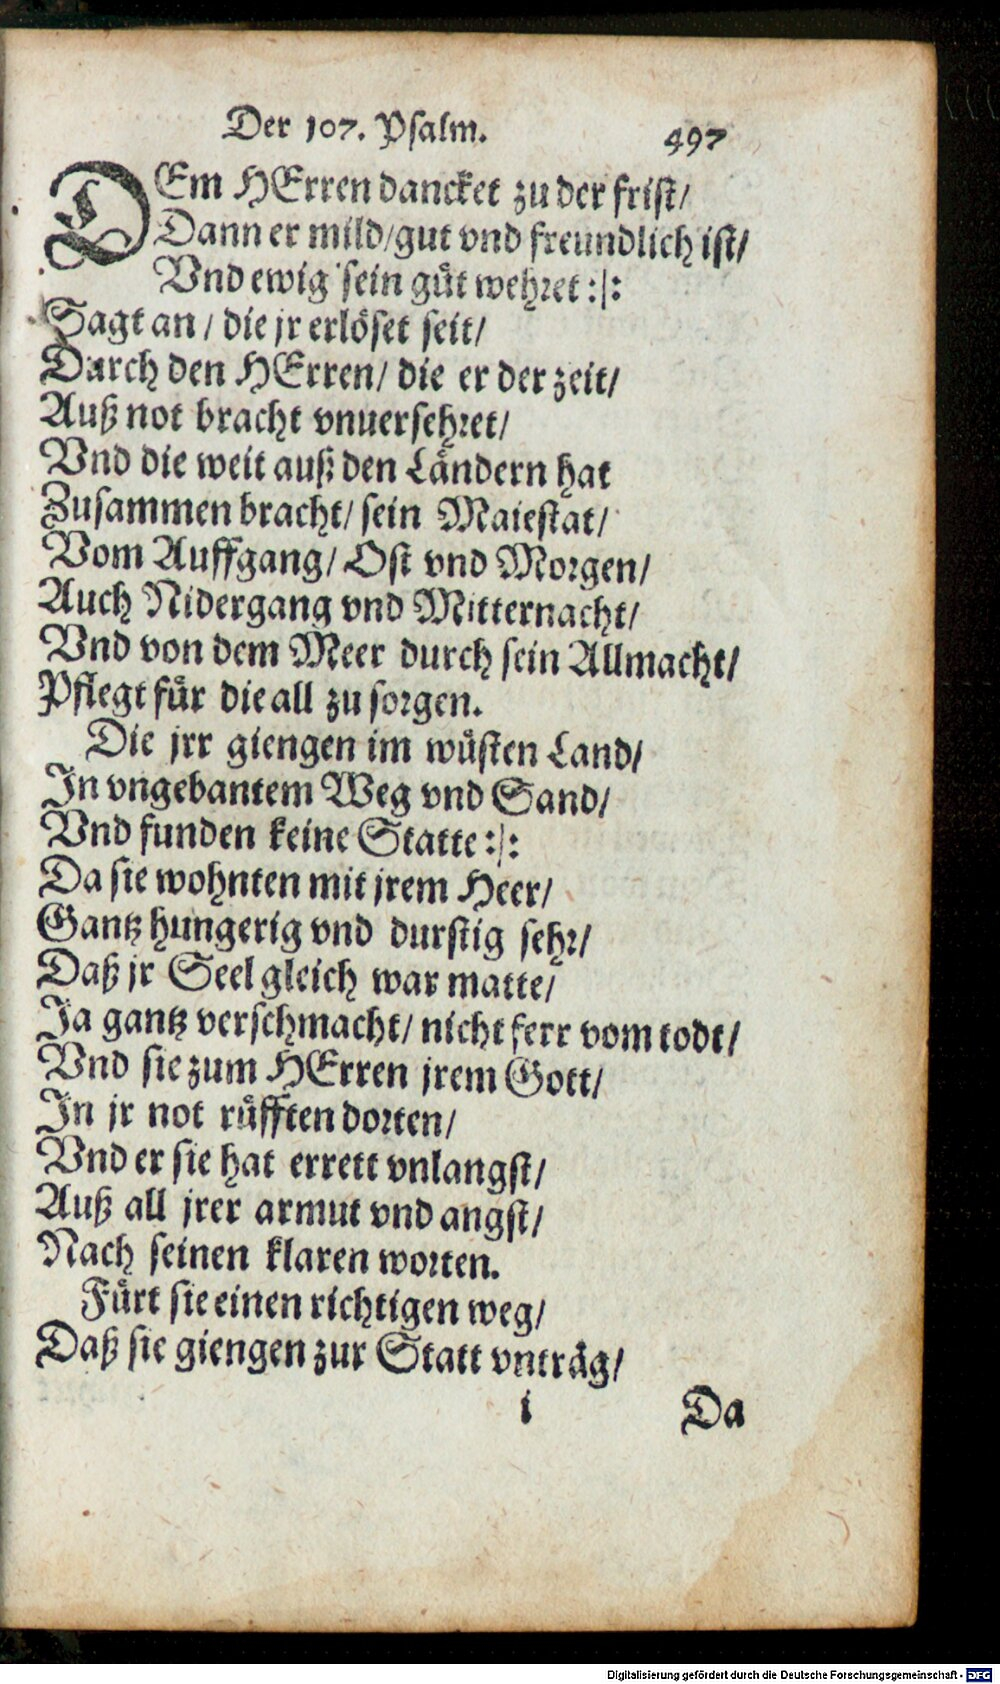 Der 107. Psalm. 497
DEm HErren dancket zu der frist/
Dann er mild/gut vnd freundlich ist/
Vnd ewig sein güt wehret :/:
Sagt an / die jr erlöset seit/
Durch den HErren/ die er der zeit/
Auß not bracht vnuersehret/
Vnd die weit auß den Ländern hat
Zusammen bracht/ sein Maiestat/
Vom Auffgang/ Ost vnd Morgen/
Auch Nidergang vnd Mitternacht/
Vnd von dem Meer durch sein Allmacht/
Pflegt für die all zu sorgen.
Die jrr giengen im wüsten Land/
In vngebantem Weg vnd Sand/
Vnd funden keine Statte :/:
Da sie wohnten mit jrem Heer/
Gantz hungerig vnd durstig sehr/
Daß jr Seel gleich war matte/
Ja gantz verschmacht/ nicht ferr vom todt/
Vnd sie zum HErren jrem Gott/
In jr not rüfften dorten/
Vnd er sie hat errett vnlangst/
Auß all jrer armut vnd angst/
Nach seinen klaren worten.
Fürt sie einen richtigen weg/
Daß sie giengen zur Statt vnträg/
i Da
Digitalisierung gefördert durch die Deutsche Forschungsgemeinschaft - DFG